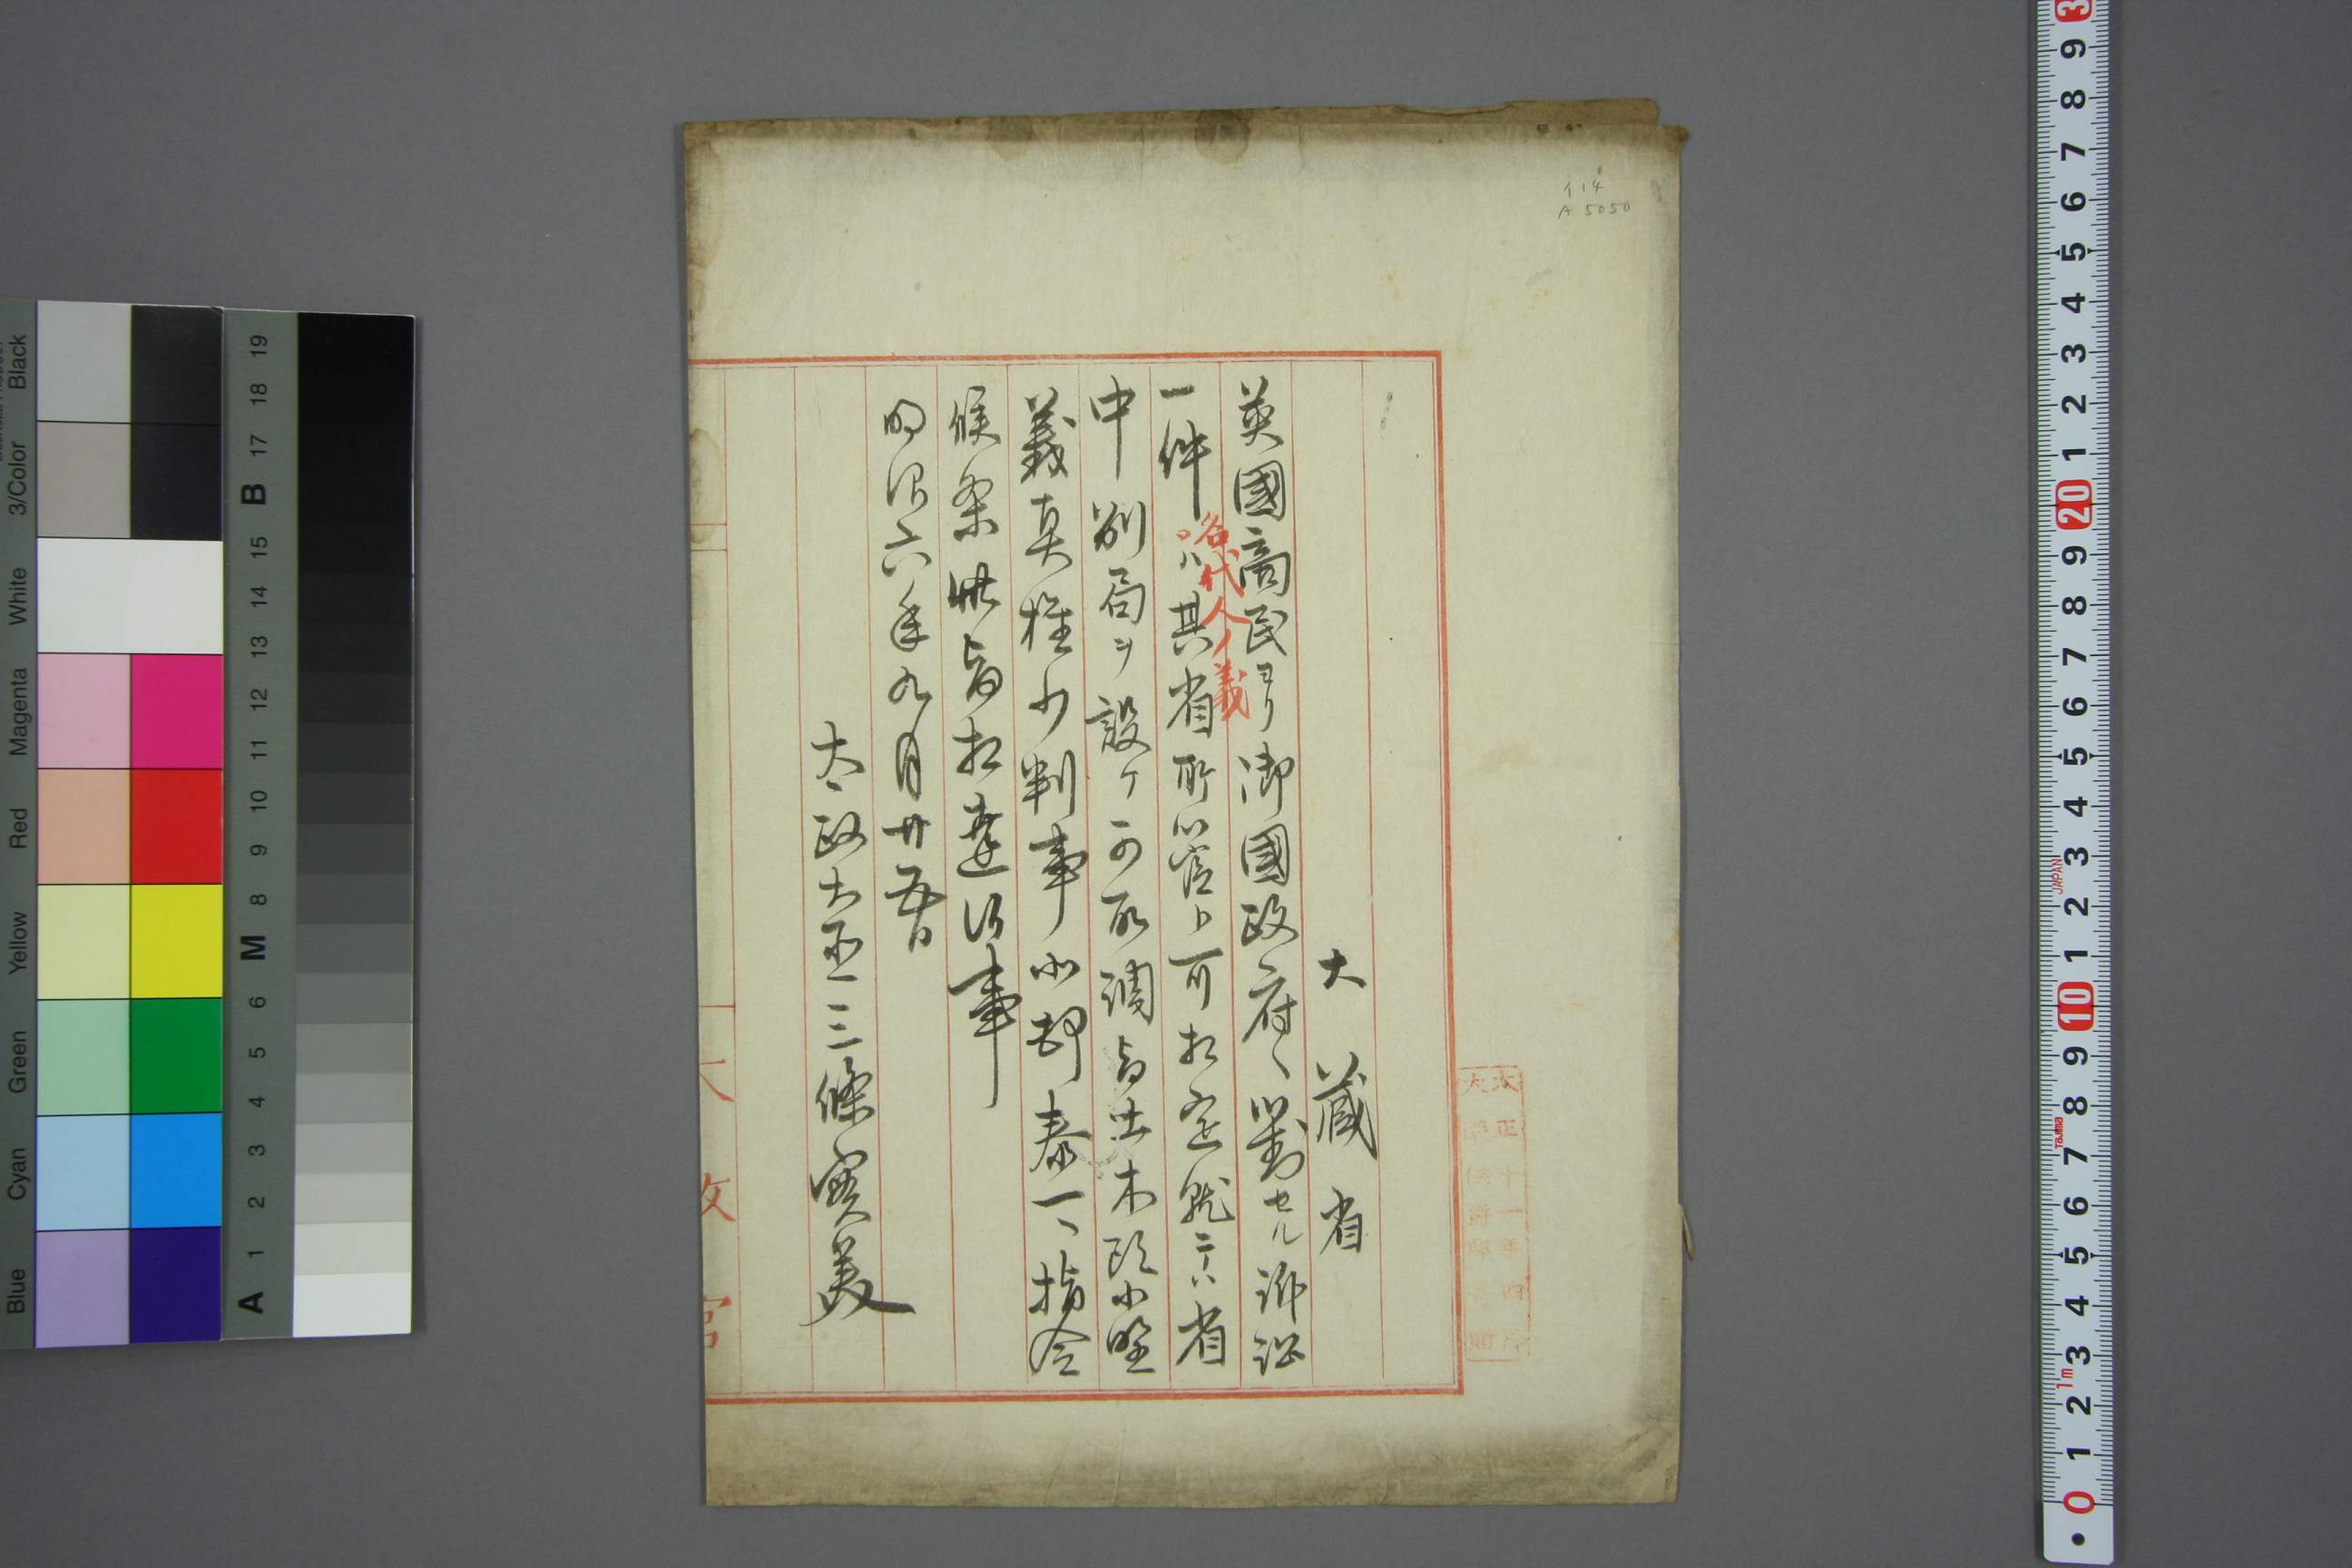 イ14
A 5050
大藏省
英國商民ヨリ御國政府ヘ對セル訴訟
一件ハ其省所管ト可相定就テハ省
名代人ノ義
中別局ヲ設ケ可取調旨土木頭小野
義真権少判事小野泰一ヘ指令
候条此旨相達候事
明治六年九月廿五日
太政大臣三條實美
大正十一年四月
太政官